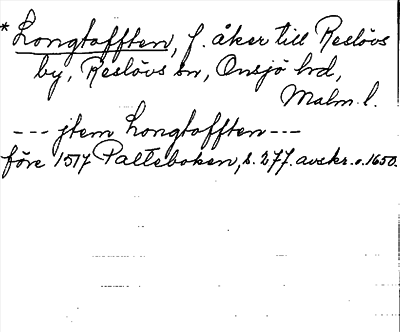 * Longtofften, f. åker till Reslövs
by, Reslövs sn, Onsjö hd,
Malm. l.
--- jtem Longtofften ---
före 1517 Palteboken, s. 277. avskr. o. 1650.